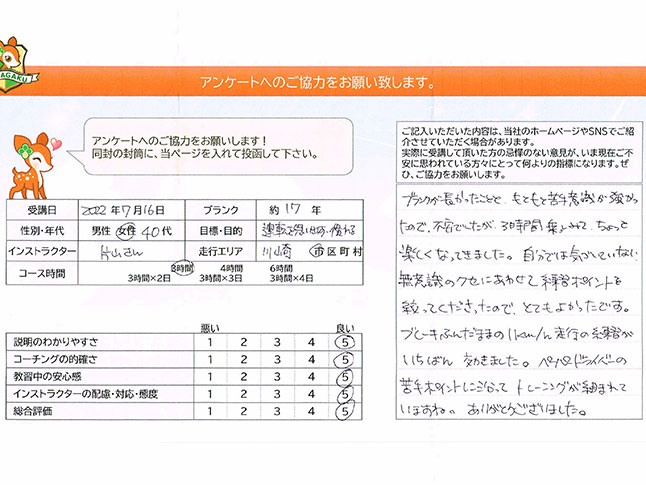 AGAKU
アンケートへのご協力をお願い致します。
アンケートへのご協力をお願いします！
同封の封筒に、当ページを入れて投函して下さい。
受講日 2022年7月16日 ブランク 約17年
性別・年代 男性 女性 40代 目標・目的 運転を思い出す・慣れる
インストラクター 片山さん 走行エリア 川崎 市区町村
コース時間 3時間 4時間 6時間
3時間×2日 3時間×3日 3時間×4日
悪い 良い
説明のわかりやすさ 1 2 3 4 5
コーチングの的確さ 1 2 3 4 5
教習中の安心感 1 2 3 4 5
インストラクターの配慮・対応・態度 1 2 3 4 5
総合評価 1 2 3 4 5
ご記入いただいた内容は、当社のホームページやSNSでご紹
介させていただく場合があります。
実際に受講して頂いた方の忌憚のない意見が、いま現在ご不
安に思われている方々にとって何よりの指標になります。ぜ
ひ、ご協力をお願いします。
ブランクが長かったことと、もともと苦手意識が強かっ
たので、不安でしたが、3時間乗ってみて、ちょっと
楽しくなってきました。自分では気づいていない
無意識のクセにあわせて練習ポイントを
絞ってくださったので、とてもよかったです。
ブレーキふんだままの1km/h走行の練習が
いちばん効きました。ペーパードライバーの
苦手ポイントに沿ってトレーニングが組まれて
いますね。ありがとうございました。